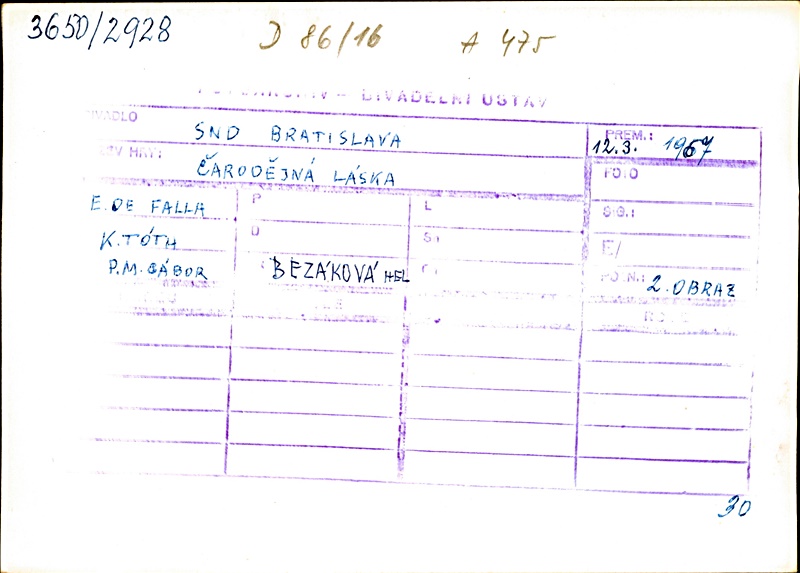 3650/2928 D 86/16 A 475
DIVADELNÍ ÚSTAV
SND BRATISLAVA PREM.: 12.3. 1967
ČARODĚJNÁ LÁSKA FOTO
E. DE FALLA P L SIG.:
K. TÓTH D S: E/
P.M. GÁBOR BEZÁKOVÁ HEL PO.N.: 2. OBRAZ
30